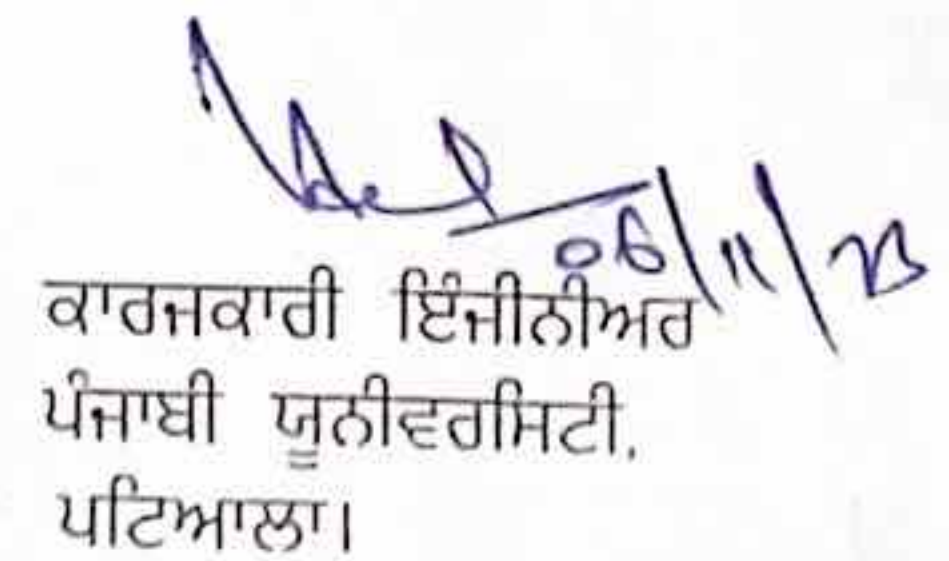 06/11/23
ਕਾਰਜਕਾਰੀ ਇੰਜੀਨੀਅਰ
ਪੰਜਾਬੀ ਯੂਨੀਵਰਸਿਟੀ,
ਪਟਿਆਲਾ।